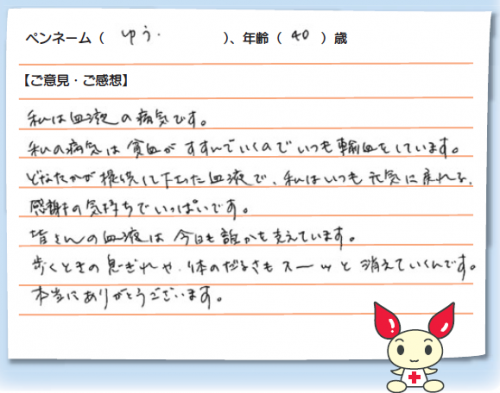 ペンネーム( ゆう. )、年齢( 40 )歳
【ご意見・ご感想】
私は血液の病気です。
私の病気は貧血がすすんでいくのでいつも輸血をしています。
どなたかが提供して下さった血液で、私はいつも元気に戻れる、
感謝の気持ちでいっぱいです。
皆さんの血液は今日も誰かを支えています。
歩くときの息ぎれや、体のだるさもスーッと消えていくんです。
本当にありがとうございます。